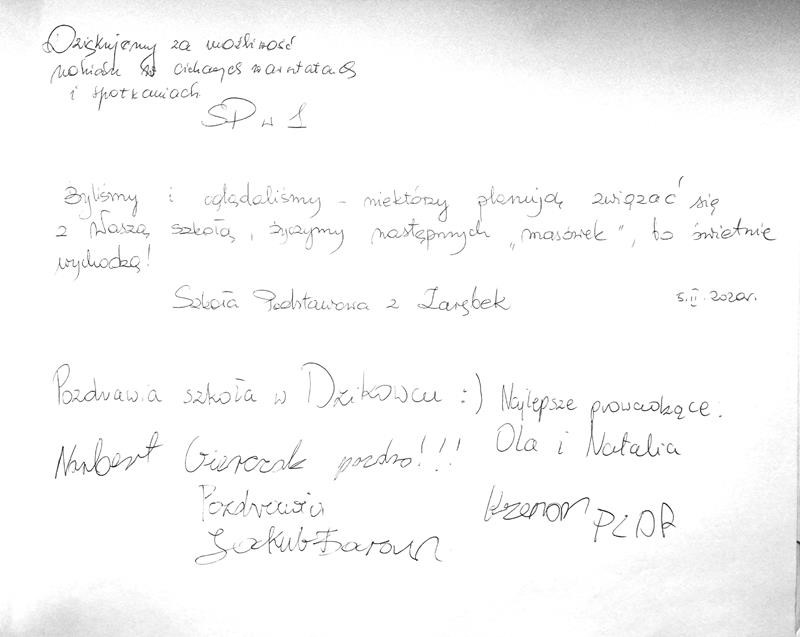 Dziękujemy za możliwość
udziału w ciekawych warsztatach
i spotkaniach
SP nr 1
Byliśmy i oglądaliśmy - niektórzy planują związać się
z Waszą szkołą, życzymy następnych „masówek”, bo świetnie
wychodzą!
Szkoła Podstawowa z Zarębek
5.II.2020r.
Pozdrawia szkoła w Dzikowcu :)
Najlepsze prowadzące:
Ola i Natalia
Norbert pozdro!!!
Pozdrawia
Jakub Baran